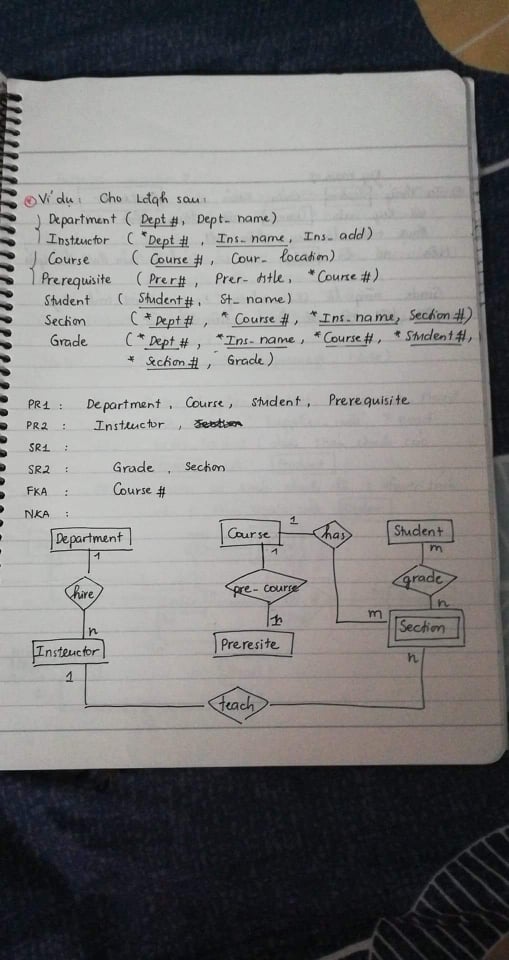 * Ví dụ : Cho Lđqh sau :
Department ( Dept #, Dept_ name)
Instructor ( *Dept # , Ins_ name, Ins_ add)
Course ( Course # , Cour_ location)
Prerequisite ( Prer#, Prer- title, *Course #)
Student ( Student#, St_ name)
Section ( * Dept # , * Course # , * Ins_ name, Section #)
Grade ( * Dept # , *Ins_name , *Course#, * Student#,
* Section # , Grade )
PR1 : Department , Course , Student , Prerequisite
PR2 : Instructor ,
SR1 :
SR2 : Grade , Section
FKA : Course #
NKA :
Department Course 1 has Student
1 1 m
hire pre-course grade
n n n
Instructor Preresite m Section
1 n
teach